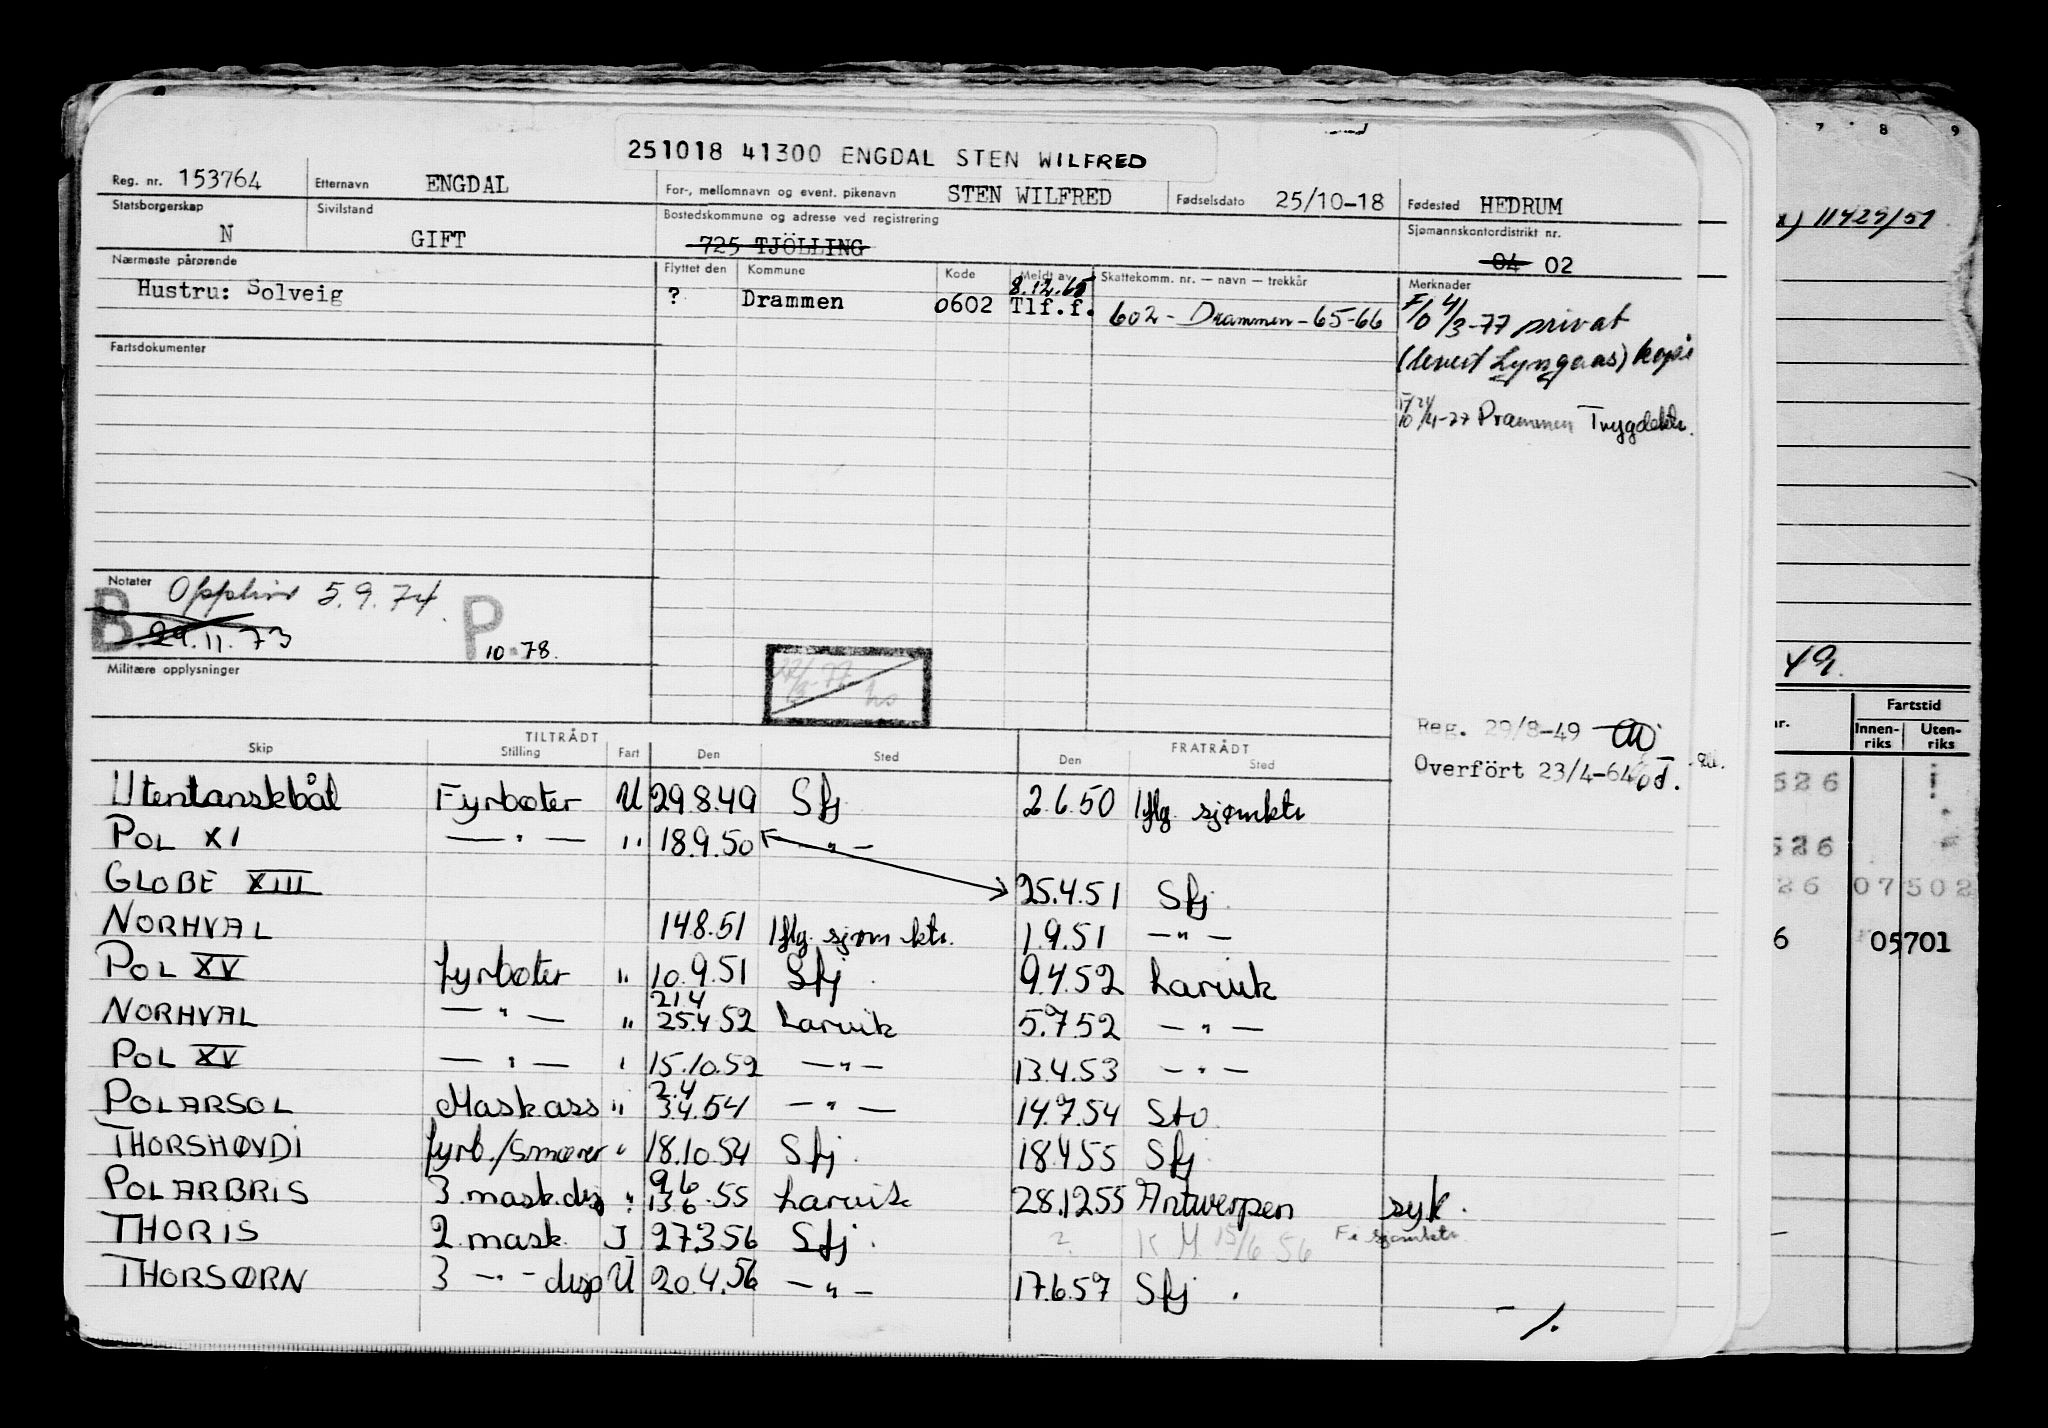 251018 41300 ENGDAL STEN WILFRED
Reg. nr. 153764 Etternavn ENGDAL For-, mellomnavn og event. pikenavn STEN WILFRED Fødselsdato 25/10-18 Fødested HEDRUM
Statsborgerskap N Sivilstand GIFT Bostedskommune og adresse ved registrering 725 TJÖLLING Sjømannskontordistrikt nr. 04 02
Nærmeste pårørende Flyttet den Kommune Kode Meldt av Skattekomm. nr. — navn — trekkår Merknader
8.12.65
Hustru: Solveig ? Drammen 0602 Tlf.f. 602 - Drammen - 65-66 F/O 4/3-77 privat
Fartsdokumenter (levert Lyngaas) kopi
Drammen Trygdekt.
Notater
Opphør 5.9.74.
B 29.11.73 P 10-78.
Militære opplysninger
Reg. 29/8-49
Overfört 23/4-64
TILTRÅDT FRATRÅDT
Skip Stilling Fart Den Sted Den Sted
Utentanskbål Fyrbøter U 29.8.49 Sfj 2.6.50 Iflg. sjømktr
POL XI — " — " 18.9.50 — " —
GLOBE XIII 25.4.51 Sfj.
NORHVAL 14.8.51 Iflg. sjøm ktr. 1.9.51 — " —
POL XV fyrbøter " 10.9.51 Sfj. 9.4.52 Larvik
21.4
NORHVAL — " — " 25.4.52 Larvik 5.7.52 — " —
POL XV — " — " 15.10.52 — " — 13.4.53 — " —
2.4
POLARSOL Mask ass " 3.4.54 — " — 14.7.54 Sto.
THORSHØVDI fyrb./Smører " 18.10.54 Sfj. 18.4.55 Sfj.
9.6
POLARBRIS 3. mask.disp " 13.6.55 Larvik 28.12.55 Antwerpen syk.
THORIS 2 mask. I 27.3.56 Sfj. ? K M 15/6 56 sjømktr.
THORSØRN 3 — " — disp U 20.4.56 — " — 17.6.57 Sfj.
7 8 9
11429/51
49.
Fartstid
nr. Innen-riks Uten-riks
526
526
26 07502
6 05701